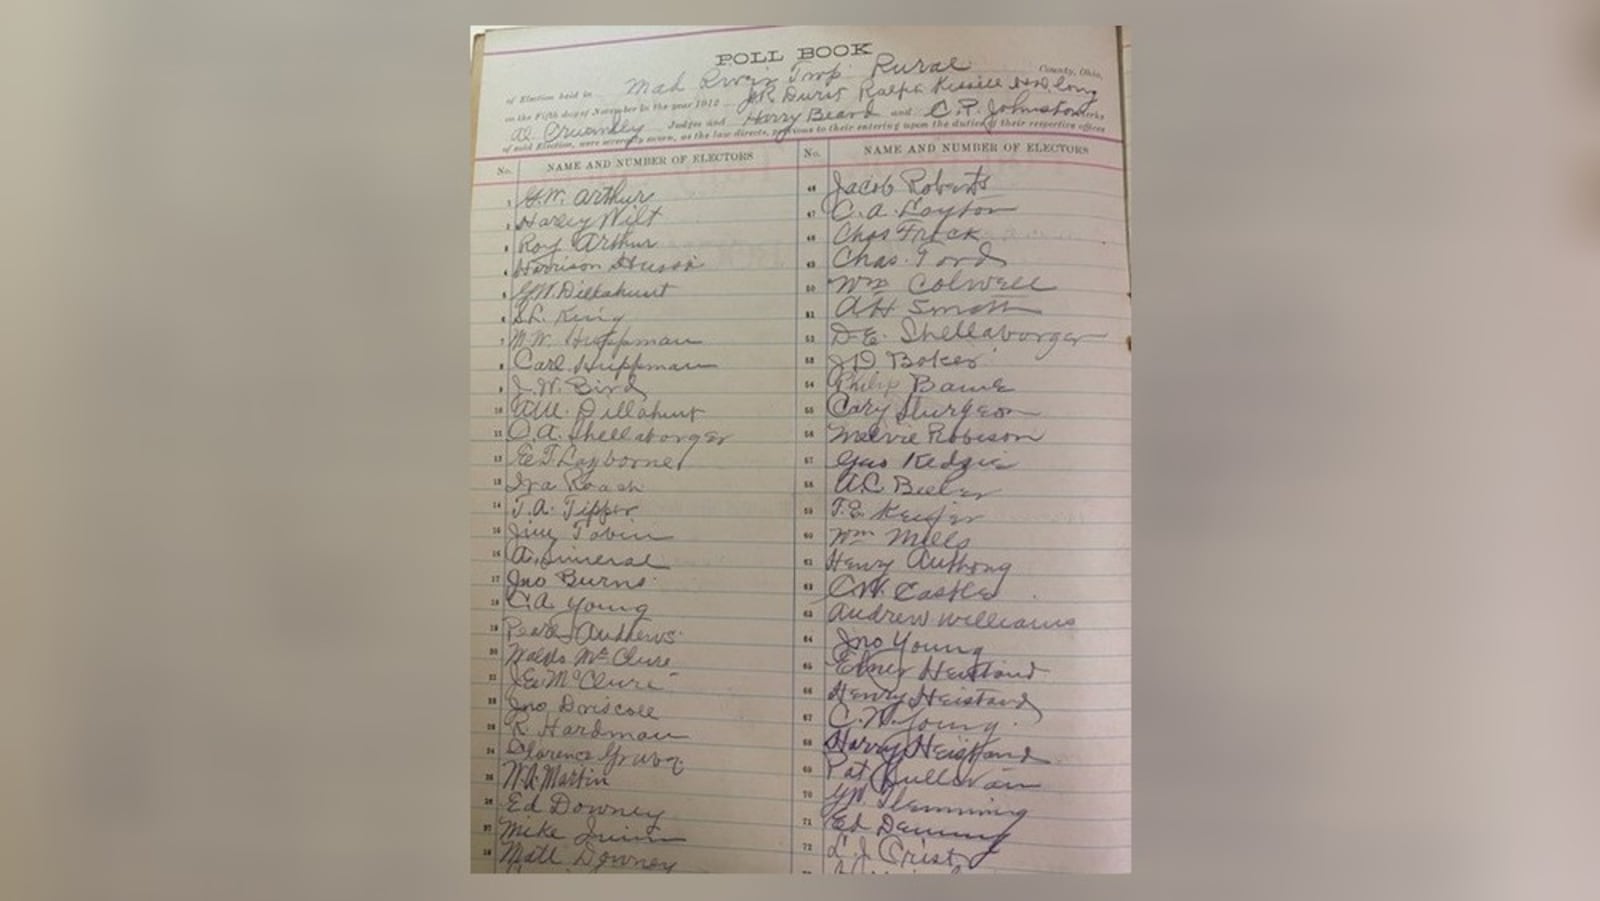 POLL BOOK
of Election held in Mad River Twp Rural County, Ohio,
on the Fifth day of November in the year 1912 J.R. Durst Ralph Kissell Long
Al Crumley Judges and Harry Beard and C. P. Johnston Clerks
of said Election, were severally sworn, as the law directs, previous to their entering upon the duties of their respective offices
No. NAME AND NUMBER OF ELECTORS No. NAME AND NUMBER OF ELECTORS
1 G.W. Arthur
2 Harley Wilt
3 Roy Arthur
4 Harrison
5 G.W. Dillahunt
6 S.L. King
7 M.W. Huffman
8 Carl Huffman
9 J.W. Bird
10 Dillahunt
11 O.A. Shellabarger
12 Layborne
13 Ira Roach
14 T.A. Tipper
15 Jim Tobin
16 A. Simeral
17 Jno Burns
18 C.A. Young
19 Pearl Andrews
20 Waldo McClure
21 J.E. McClure
22 Jno Driscoll
23 R. Hardman
24 Clarence
25 W.A. Martin
26 Ed Downey
27 Mike Quinn
28 Matt Downey
46 Jacob Roberts
47 C.A. Layton
48 Chas Frick
49 Chas. Ford
50 Wm Colwell
51 AH Smith
52 D.E. Shellabarger
53 J.D Baker
54 Philip
55 Cary Sturgeon
56 Melvie Robison
57 Kedzie
58 A.C.
59 T.E. Keifer
60 Wm Mills
61 Henry Anthony
62 C.W. Castle
63 Andrew Williams
64 Jno Young
65 Elmer Heistand
66 Henry Heistand
67 C.W. Young
68 Harry Heistand
69 Pat Sullivan
70 Flemming
71 Ed
72 L J Crist